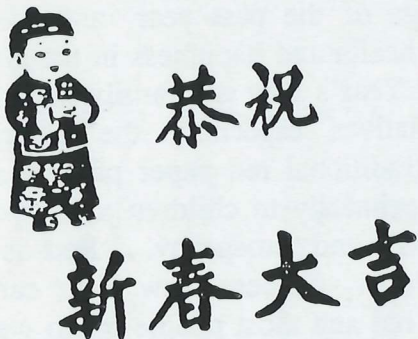 恭祝
新春大吉